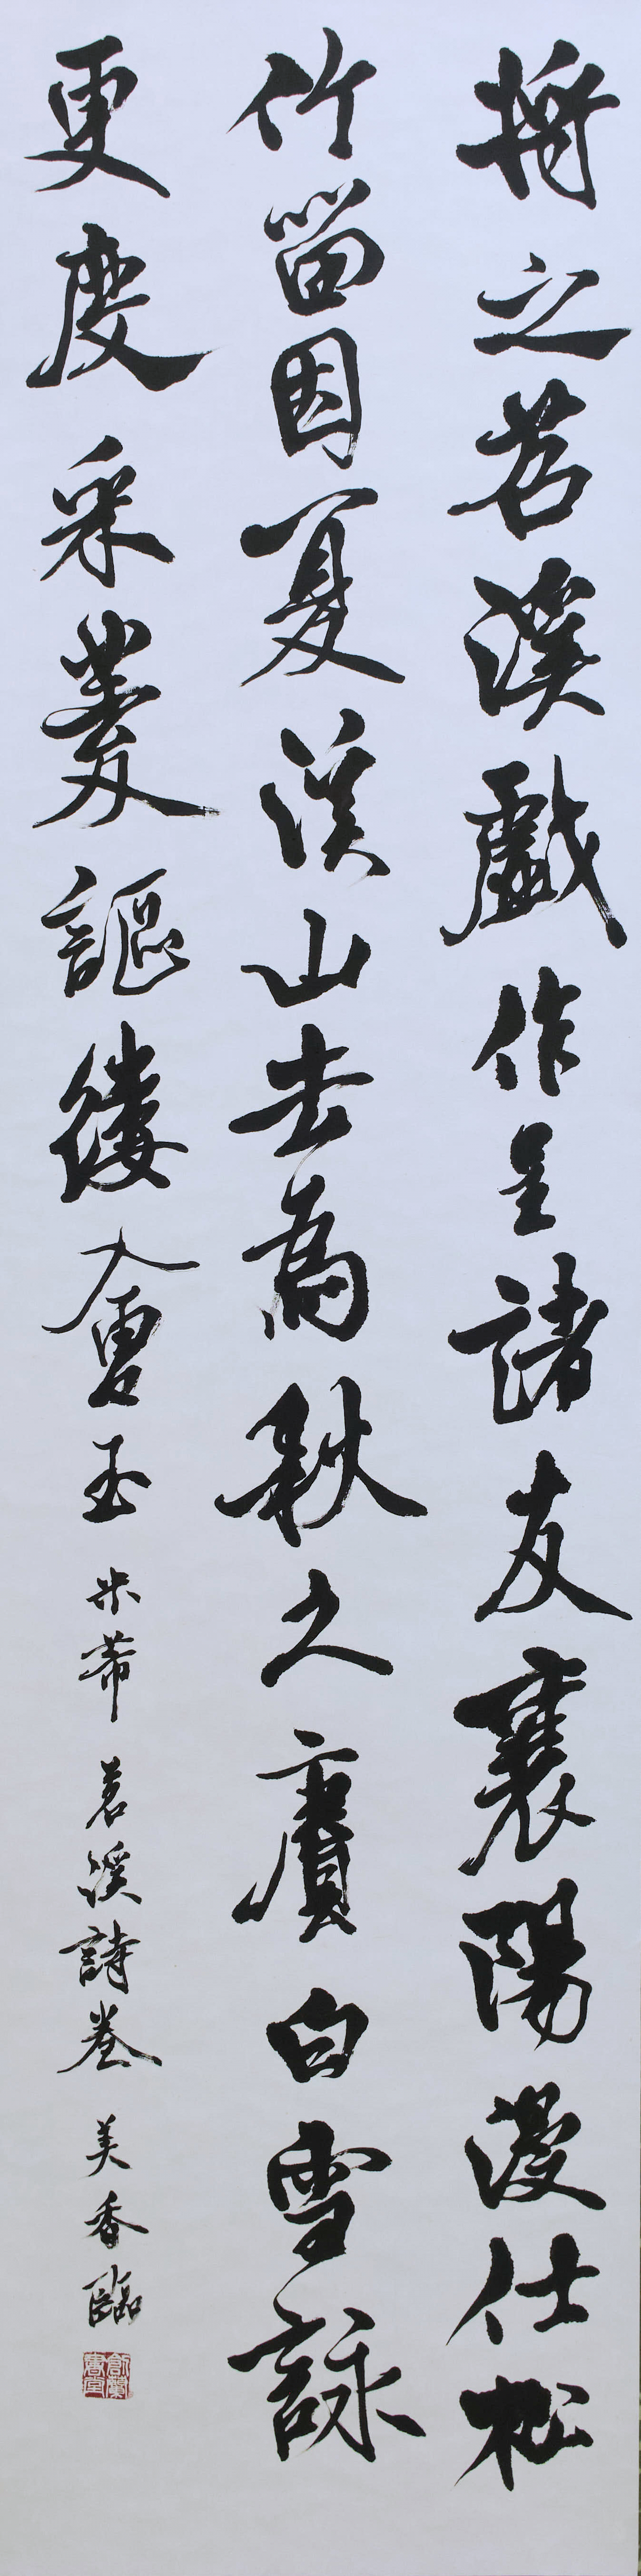 將之苕溪戲作呈諸友襄陽漫仕松
竹留因夏溪山去為秋久賡白雪詠
更度采菱謳縷會玉 米芾 苕溪詩卷 美香臨